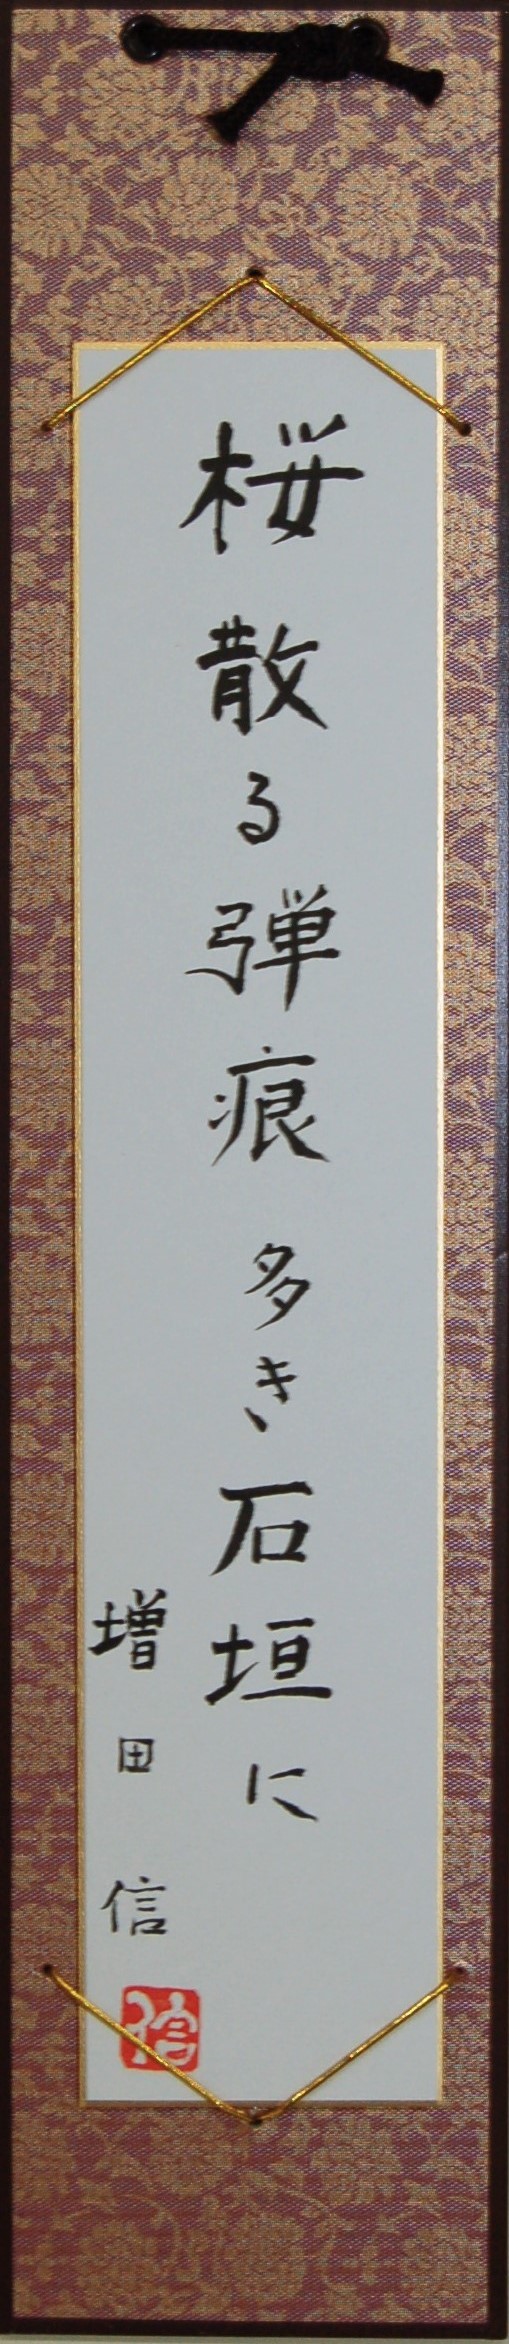 桜散る弾痕多き石垣に
増田信
信